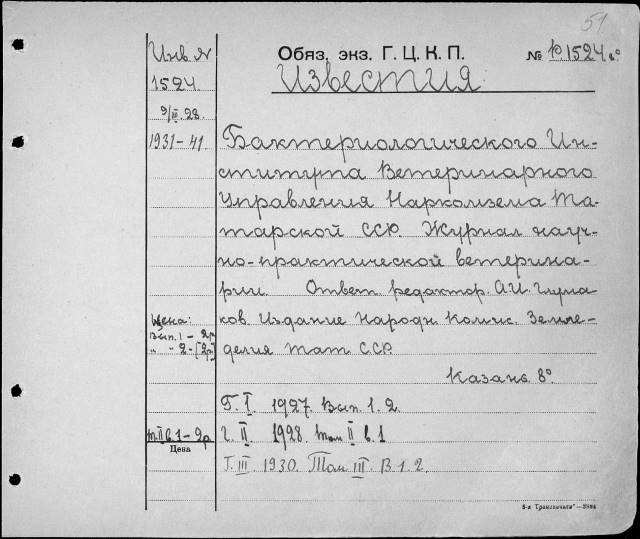 51
Инв. №
1524
9/III 28.
1931-41
Обяз. экз. Г. Ц. К. П.
№ 1524 8°
Известия
Бактериологического Ин-
ститута Ветеринарного
Управления Наркомзема Та-
тарской ССР. Журнал науч-
но-практической ветерина-
рии. Ответ. редактор. А.И.
ков. Издание Народн. Комис. Земле-
делия Тат ССР.
Казань 8°
Цена:
Вып. 1 - 2р
" " 2 - [2р]
т. II в. 1 - 2р
Цена
Г. I. 1927. Вып. 1. 2.
Г. II. 1928. том II в. 1
Г. III. 1930. Том III. В. 1. 2.